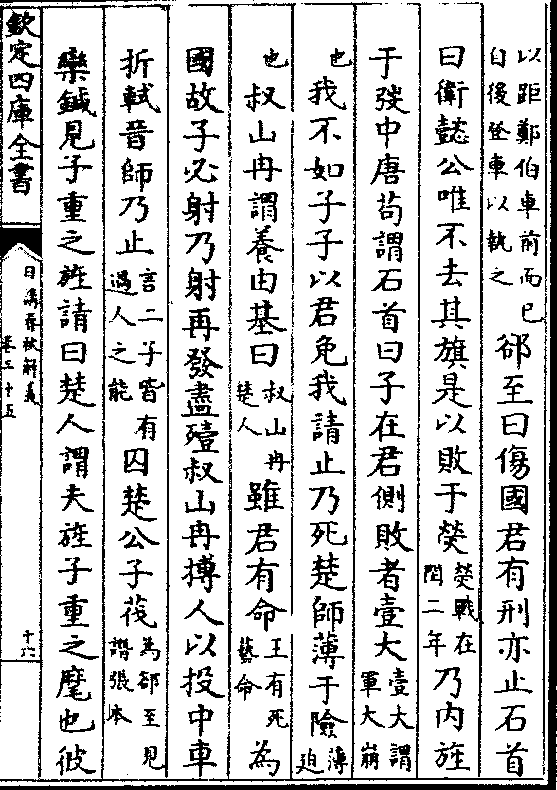 以距鄭伯車前而已
自後登車以執之
郤至曰傷國君有刑亦止石首
曰衛懿公唯不去其旗是以敗于熒
熒戰在
閔二年
乃内旌
于弢中唐苟謂石首曰子在君側敗者壹大
壹大謂
軍大崩
也
我不如子子以君免我請止乃死楚師薄于險
薄
迫
也
叔山冉謂養由基曰
叔山冉
楚人
雖君有命
王有死
藝命
為
國故子必射乃射再發盡殪叔山冉搏人以投中車
折軾晉師乃止
言二子皆有
過人之能
囚楚公子茷
為郤至見
譖張本
欒鍼見子重之旌請曰楚人謂夫旌子重之麾也彼
欽定四庫全書
日講春秋解義
卷三十五
十六